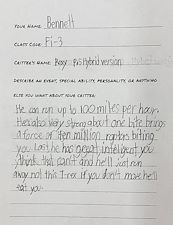 YOUR NAME: Bennett
CLASS CODE: Fi-3
CRITTER'S NAME: Rexy: hybrid version
DESCRIBE AN EVENT, SPECIAL ABILITY, PERSONALITY, OR ANYTHING
ELSE YOU WANT ABOUT YOUR CRITTER:
He can run up to 100 miles per hour.
Hes also very strong about one bite brings
a force of ten million, biting
you. Last he has great intellect you
think that can't and he'll just run
away not this T-rex. If you don't move he'll
eat you.